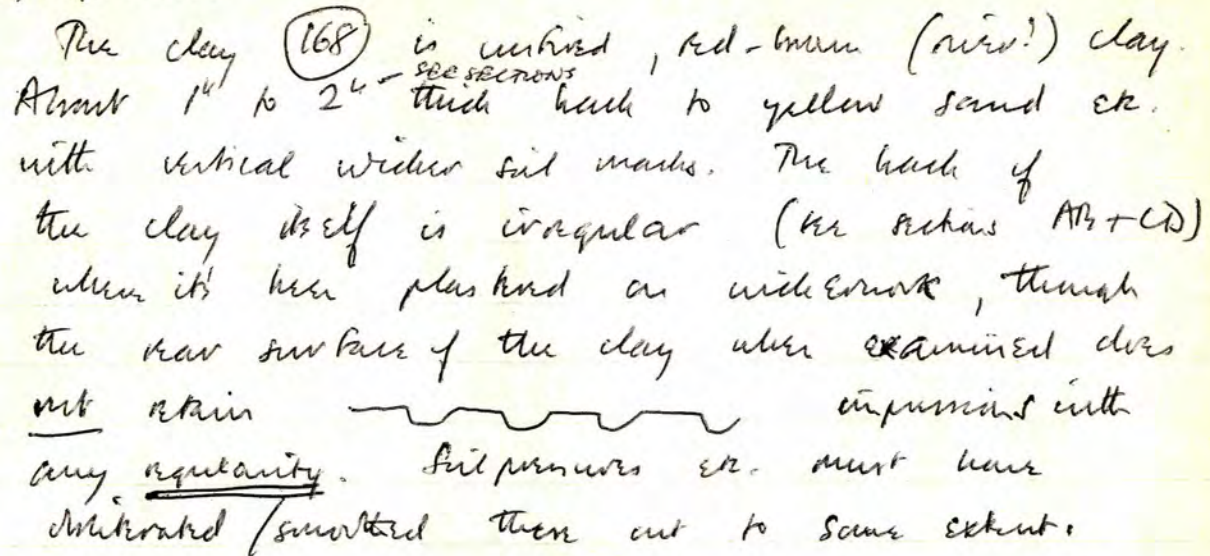 The clay (168) is unfired, red-brown (river?) clay.
About 1" to 2" - SEE SECTIONS thick back to yellow sand etc.
with vertical wicker soil marks. The back of
the clay itself is irregular (see sections AB + CD)
where it's been plastered on wickerwork, though
the rear surface of the clay when examined does
not retain impressions with
any regularity. Soil pressures etc. must have
obliterated / smoothed them out to some extent.